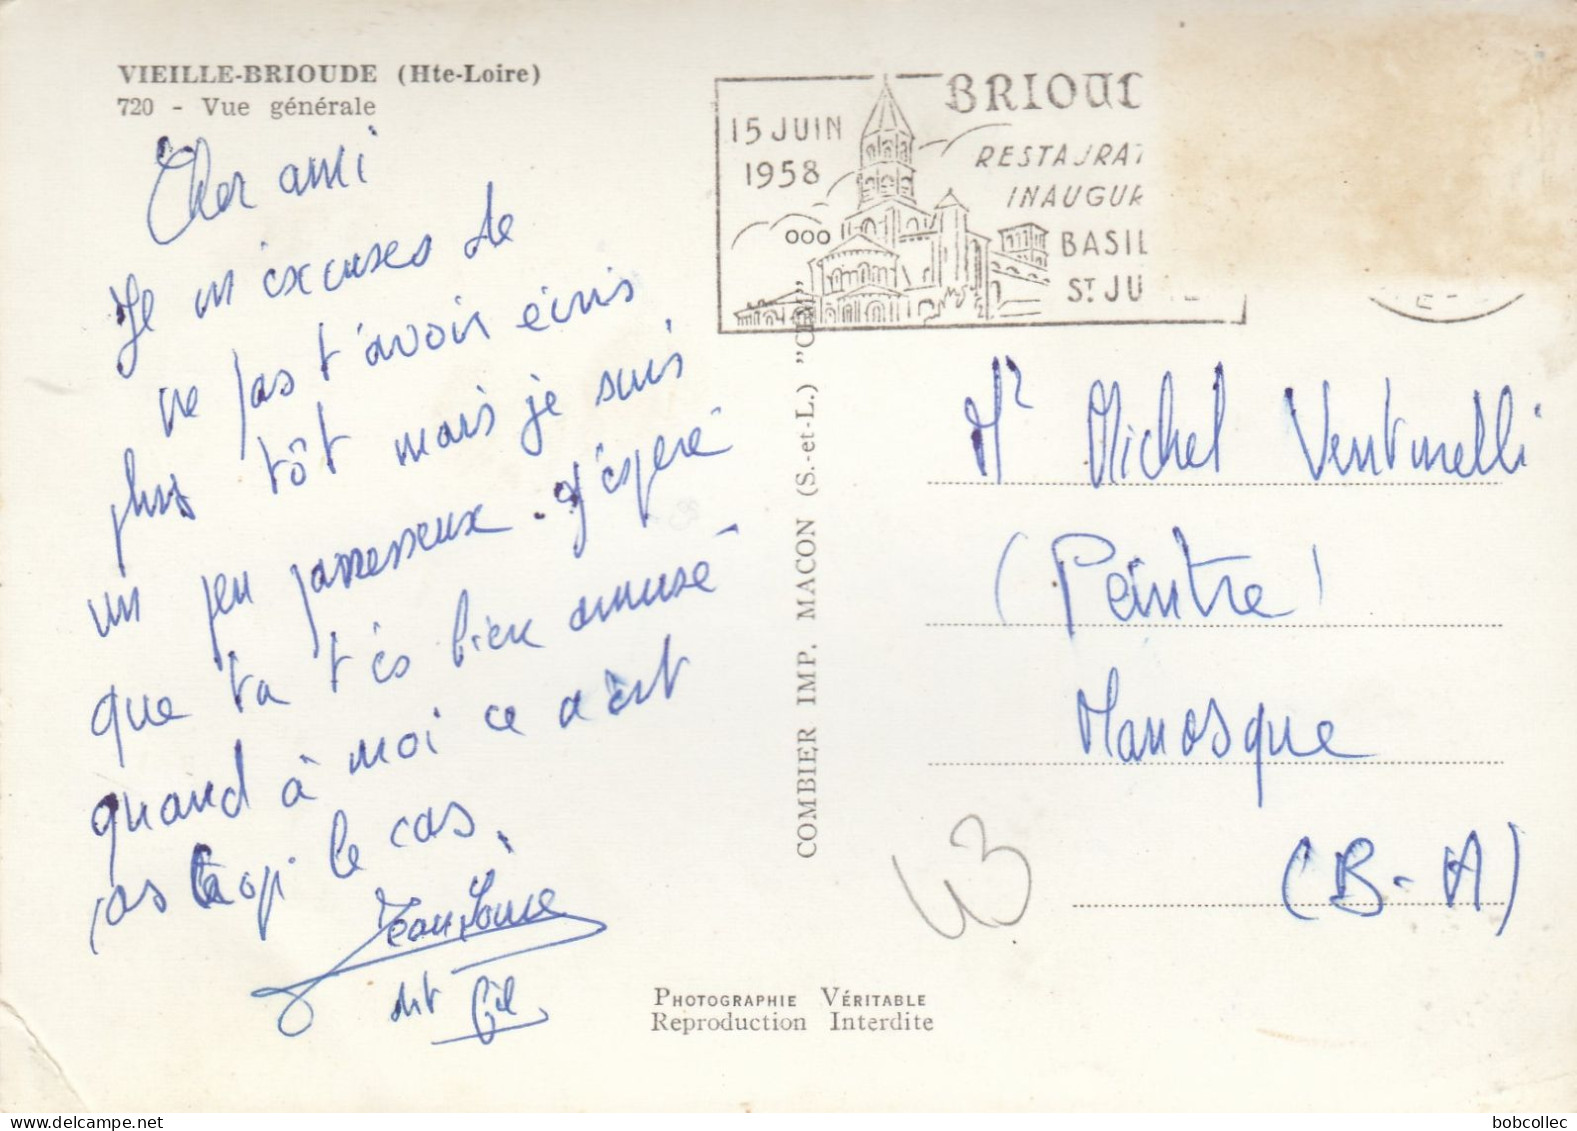 VIEILLE-BRIOUDE (Hte-Loire)
720 - Vue générale
Cher ami
Je m'excuses de
ne pas t'avoir écris
plus tôt mais je suis
un peu parresseux. J'espère
que ta t'es bien amusé
quand à moi ce n'est
pas le cas.
Jean Louis
dit Gil
15 JUIN
1958
BRIOUD
RESTAURAT
INAUGUR
BASIL
ST JU
COMBIER IMP. MACON (S.-et-L.) "CIM"
Mr Michel Ventinelli
(Peintre)
Manosque
(B-A)
43
PHOTOGRAPHIE VÉRITABLE
Reproduction Interdite
bobcollec